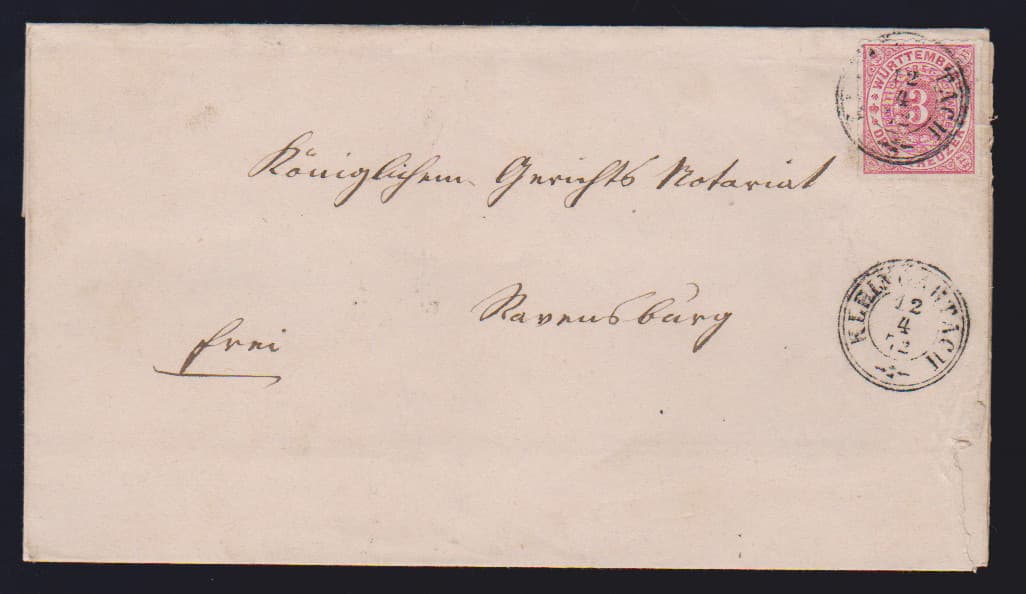 WÜRTTEMBERG
3
DREI KREUZER
12
4
72
Königlichem Gerichts Notariat
Ravensburg
frei
KLEINGARTACH
12
4
72